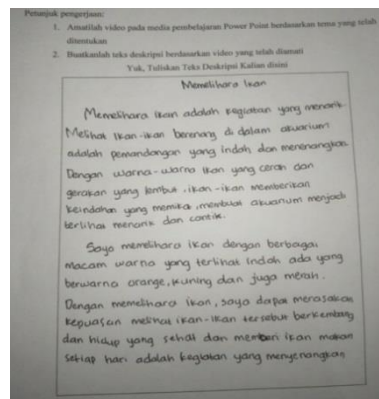 Petunjuk pengerjaan:
1. Amatilah video pada media pembelajaran Power Point berdasarkan tema yang telah
ditentukan
2. Buatkanlah teks deskripsi berdasarkan video yang telah diamati
Yuk, Tuliskan Teks Deskripsi Kalian disini
Memelihara Ikan
Memelihara ikan adalah kegiatan yang menarik.
Melihat ikan-ikan berenang di dalam akuarium
adalah pemandangan yang indah dan menenangkan.
Dengan warna-warna ikan yang cerah dan
gerakan yang lembut, ikan-ikan memberikan
keindahan yang memikat, membuat akuarium menjadi
terlihat menarik dan cantik.
Saya memelihara ikan dengan berbagai
macam warna yang terlihat indah ada yang
berwarna orange, kuning dan juga merah.
Dengan memelihara ikan, saya dapat merasakan
kepuasan melihat ikan-ikan tersebut berkembang
dan hidup yang sehat dan memberi ikan makan
setiap hari adalah kegiatan yang menyenangkan